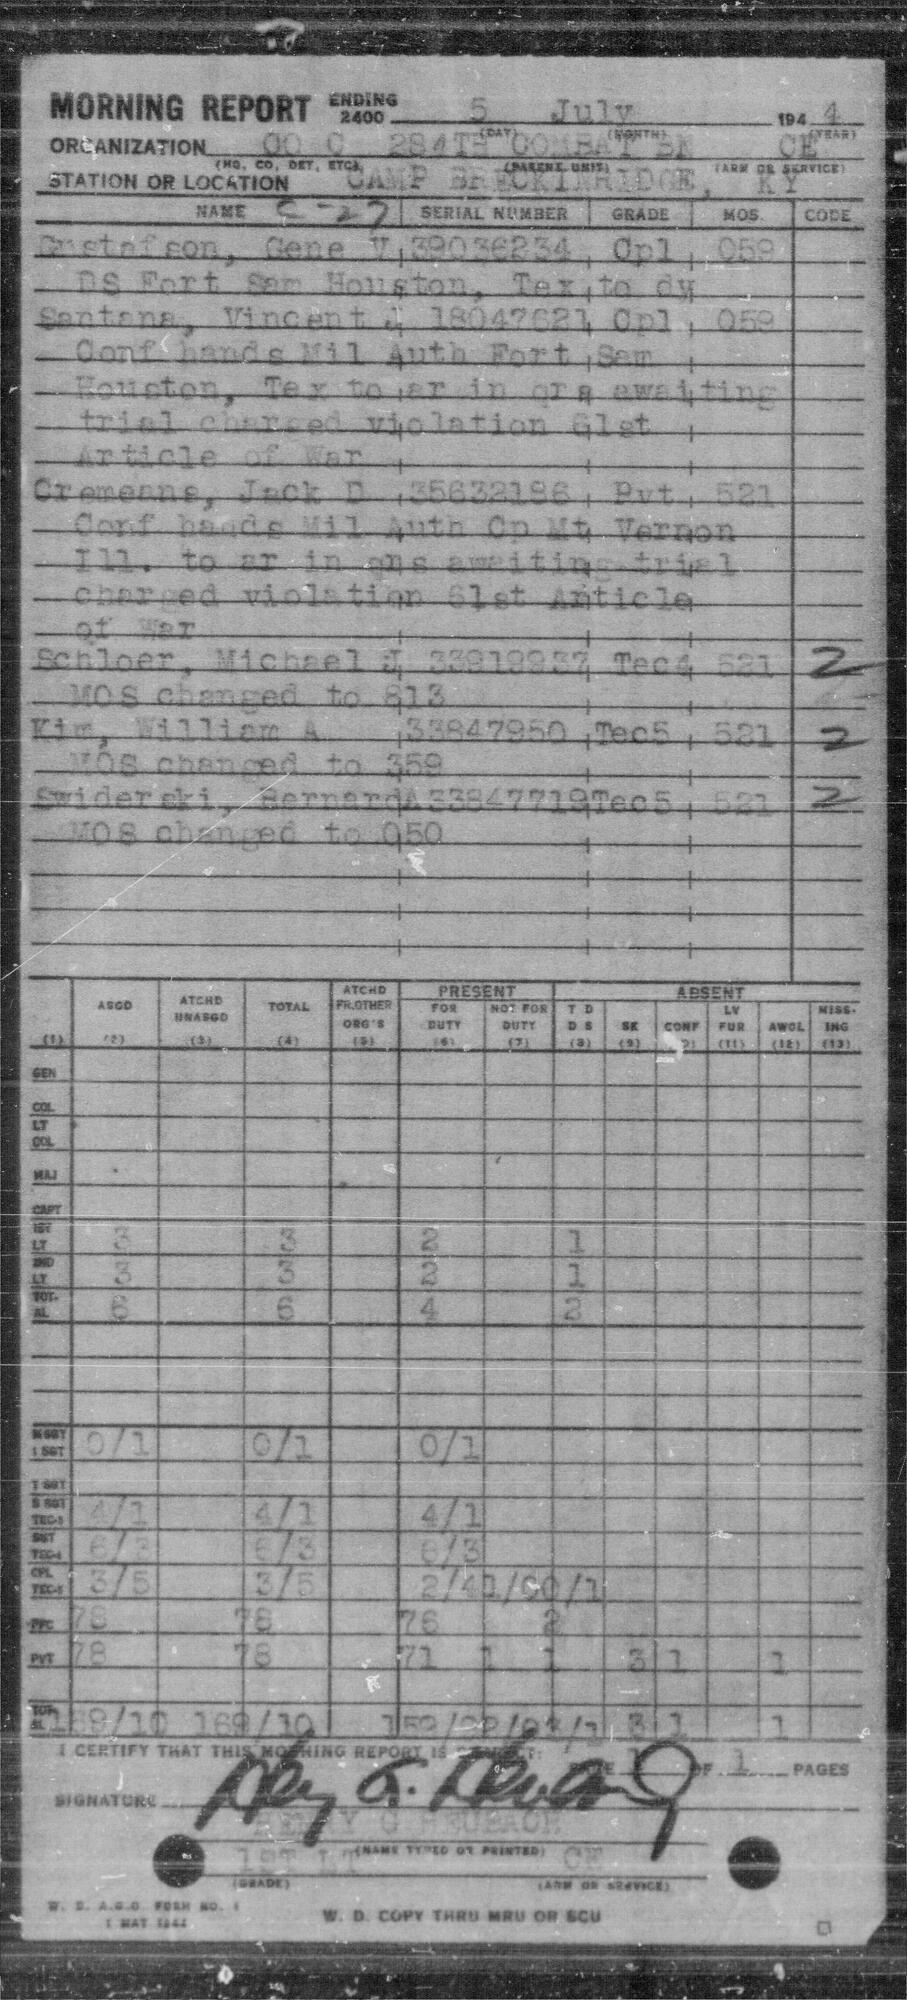 MORNING REPORT ENDING 2400 5 July 194 4
(DAY) (MONTH) (YEAR)
ORGANIZATION CO C 284TH COMBAT BN CE
(HQ. CO, DET, ETC.) (PARENT UNIT) (ARM OR SERVICE)
STATION OR LOCATION CAMP BRECKINRIDGE, KY
NAME C-27 SERIAL NUMBER GRADE MOS. CODE
Gustafson, Gene V 39036234 Cpl 059
DS Fort Sam Houston, Tex to dy
Santana, Vincent J 18047621 Cpl 059
Conf hands Mil Auth Fort Sam
Houston, Tex to ar in qrs awaiting
trial charged violation 61st
Article of War
Cremeans, Jack D 35632186 Pvt 521
Conf hands Mil Auth Cp Mt Vernon
Ill. to ar in qns awaiting trial
charged violation 61st Article
of War
Schloer, Michael J 33819937 Tec4 521 2
MOS changed to 813
Kim, William A 33847950 Tec5 521 2
MOS changed to 359
Swiderski, BernardA 33847719 Tec5 521 2
MOS changed to 050
PRESENT ABSENT
ASGD ATCHD UNASGD TOTAL ATCHD FR.OTHER ORG'S FOR DUTY NOT FOR DUTY T D D S SK CONF LV FUR AWOL MISS-ING
(1) (2) (3) (4) (5) (6) (7) (8) (9) (11) (12) (13)
GEN
COL
LT COL
MAJ
CAPT
1ST LT 3 3 2 1
2ND LT 3 3 2 1
TOT-AL 6 6 4 2
M SGT 1 SGT 0/1 0/1 0/1
T SGT
S SGT TEC-3 4/1 4/1 4/1
SGT TEC-4 6/3 6/3 6/3
CPL TEC-5 3/5 3/5 2/4 1/0 0/1
PFC 78 78 76 2
PVT 78 78 71 1 1 3 1 1
TOT-AL 169/10 169/10 159/ 3/1 3 1 1
I CERTIFY THAT THIS MORNING REPORT IS CORRECT:
PAGE 1 OF 1 PAGES
SIGNATURE
HENRY G HEUBACH
(NAME TYPED OR PRINTED)
1ST LT CE
(GRADE) (ARM OR SERVICE)
W. D. A.G.O. FORM NO. 1
1 MAY 1944
W. D. COPY THRU MRU OR SCU